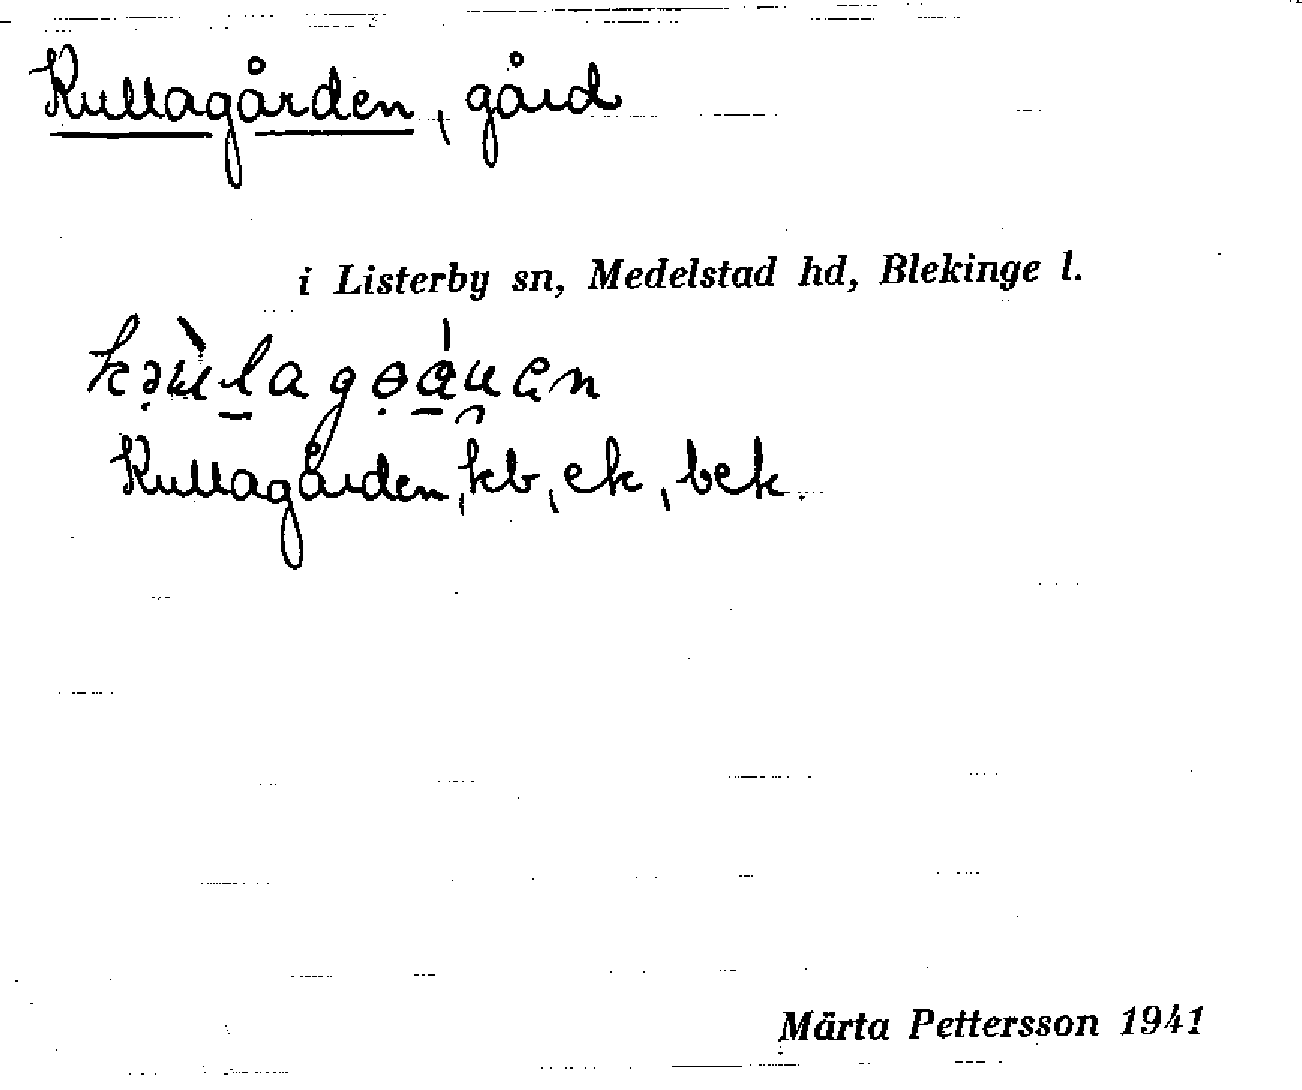 Kullagården, gård
i Listerby sn, Medelstad hd, Blekinge l.
Kullagården, kb, ek, bek.
Märta Pettersson 1941